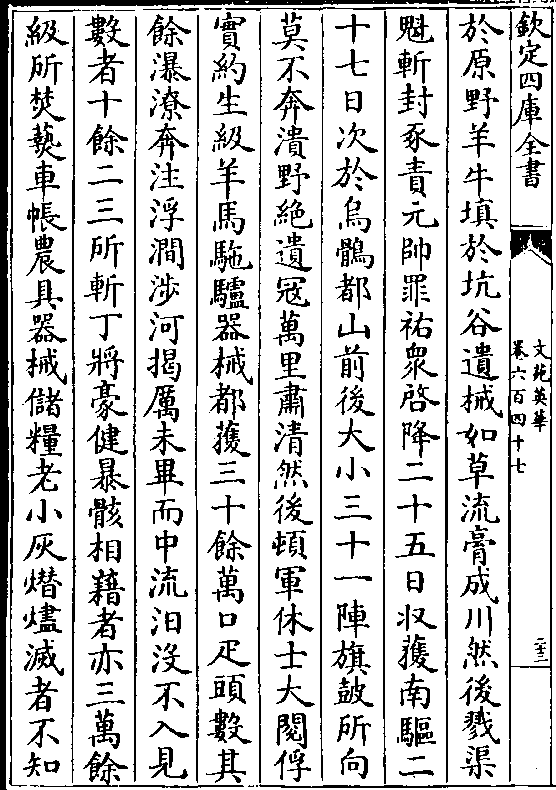 欽定四庫全書
文苑英華
卷六百四十七
二十二
於原野羊牛填於坑谷遺械如草流膏成川然後戮渠
魁斬封豕責元帥罪祐衆啓降二十五日收獲南驅二
十七日次於烏鶻都山前後大小三十一陣旗鼓所向
莫不奔潰野絶遺冦萬里肅清然後頓軍休士大閱俘
實約生級羊馬駞驢器械都䕶三十餘萬口疋頭數其
餘瀑潦奔注浮澗涉河揭厲未畢而中流汨沒不入見
數者十餘二三所斬丁將豪健暴骸相藉者亦三萬餘
級所焚爇車帳農具器械儲糧老小灰熸燼滅者不知